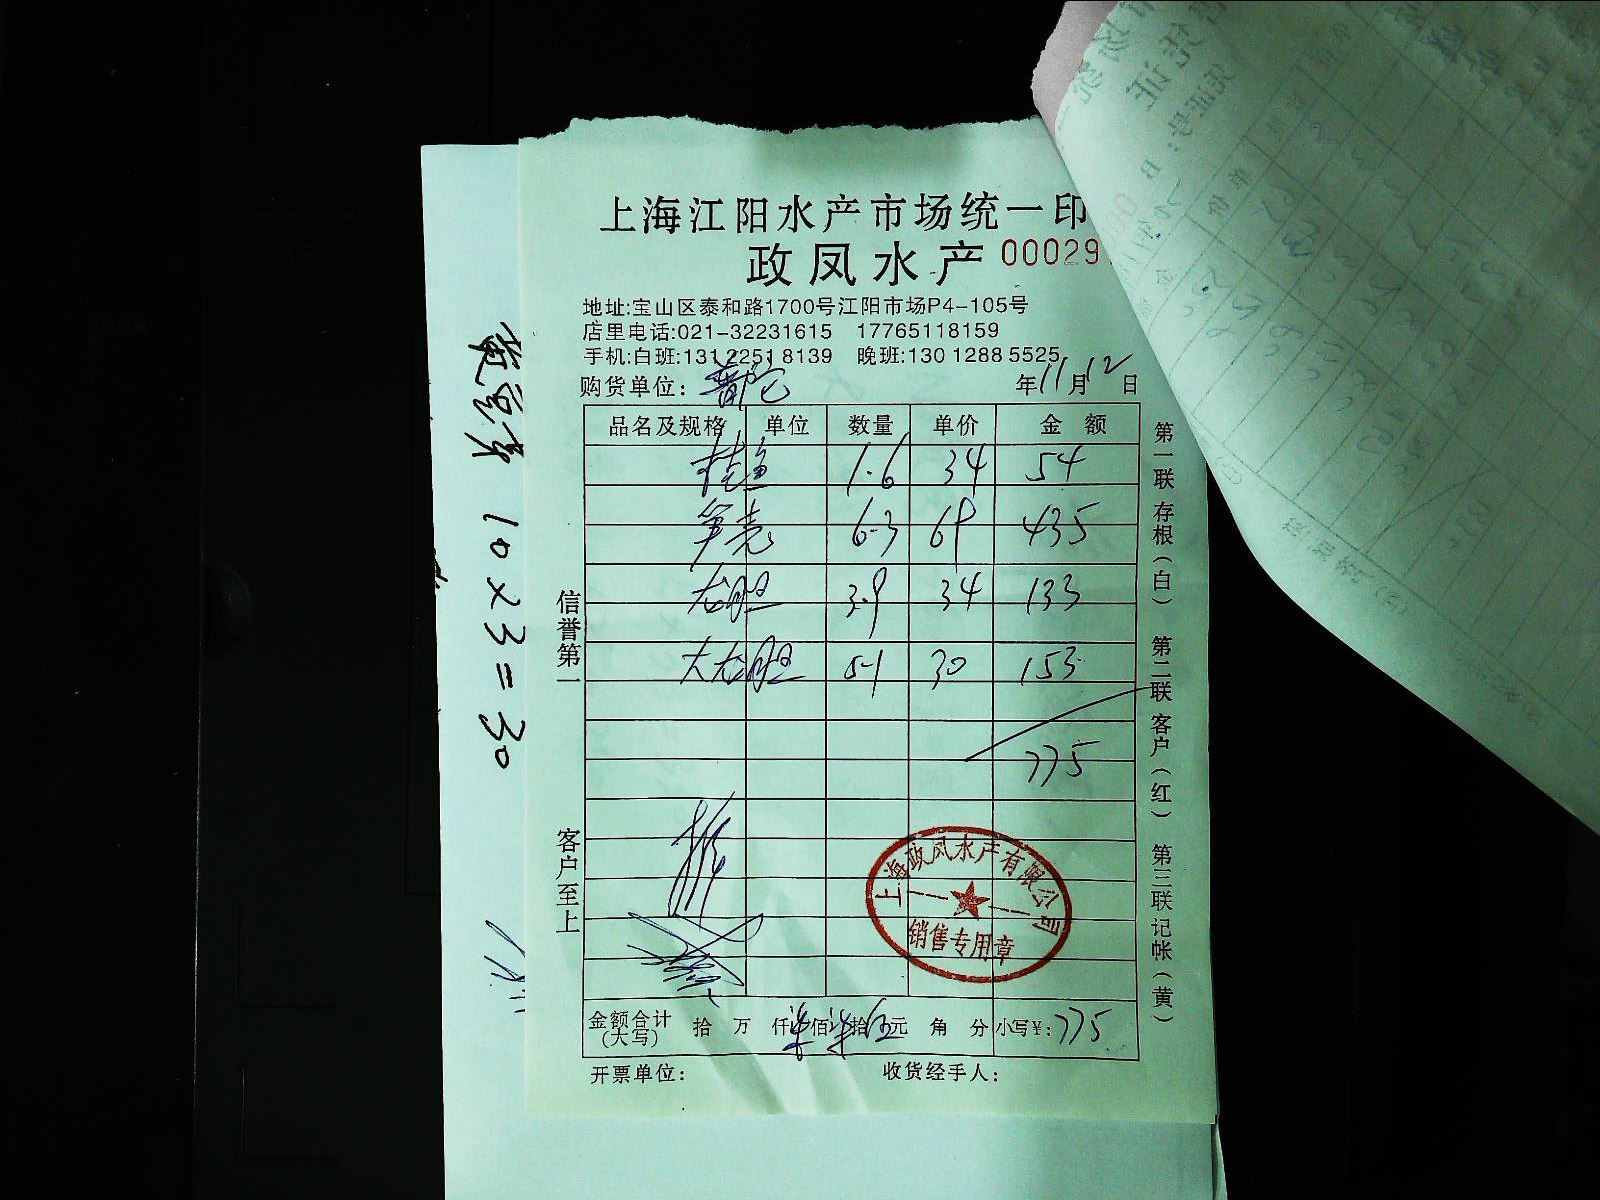 上海江阳水产市场统一印
政凤水产 00029
地址:宝山区泰和路1700号江阳市场P4-105号
店里电话:021-32231615 17765118159
手机:白班:131 2251 8139 晚班:130 1288 5525
购货单位: 普陀 年11月12日
品名及规格 单位 数量 单价 金额
桂鱼 1.6 34 54
笋壳 6.3 69 435
龙胆 3.9 34 133
大龙胆 5.1 30 153
775
上海政凤水产有限公司
销售专用章
金额合计(大写) 拾 万 仟 柒佰柒拾伍元 角 分 小写¥: 775
开票单位: 收货经手人:
信誉第一
客户至上
第一联 存根(白) 第二联 客户(红) 第三联 记帐(黄)
10×3=30